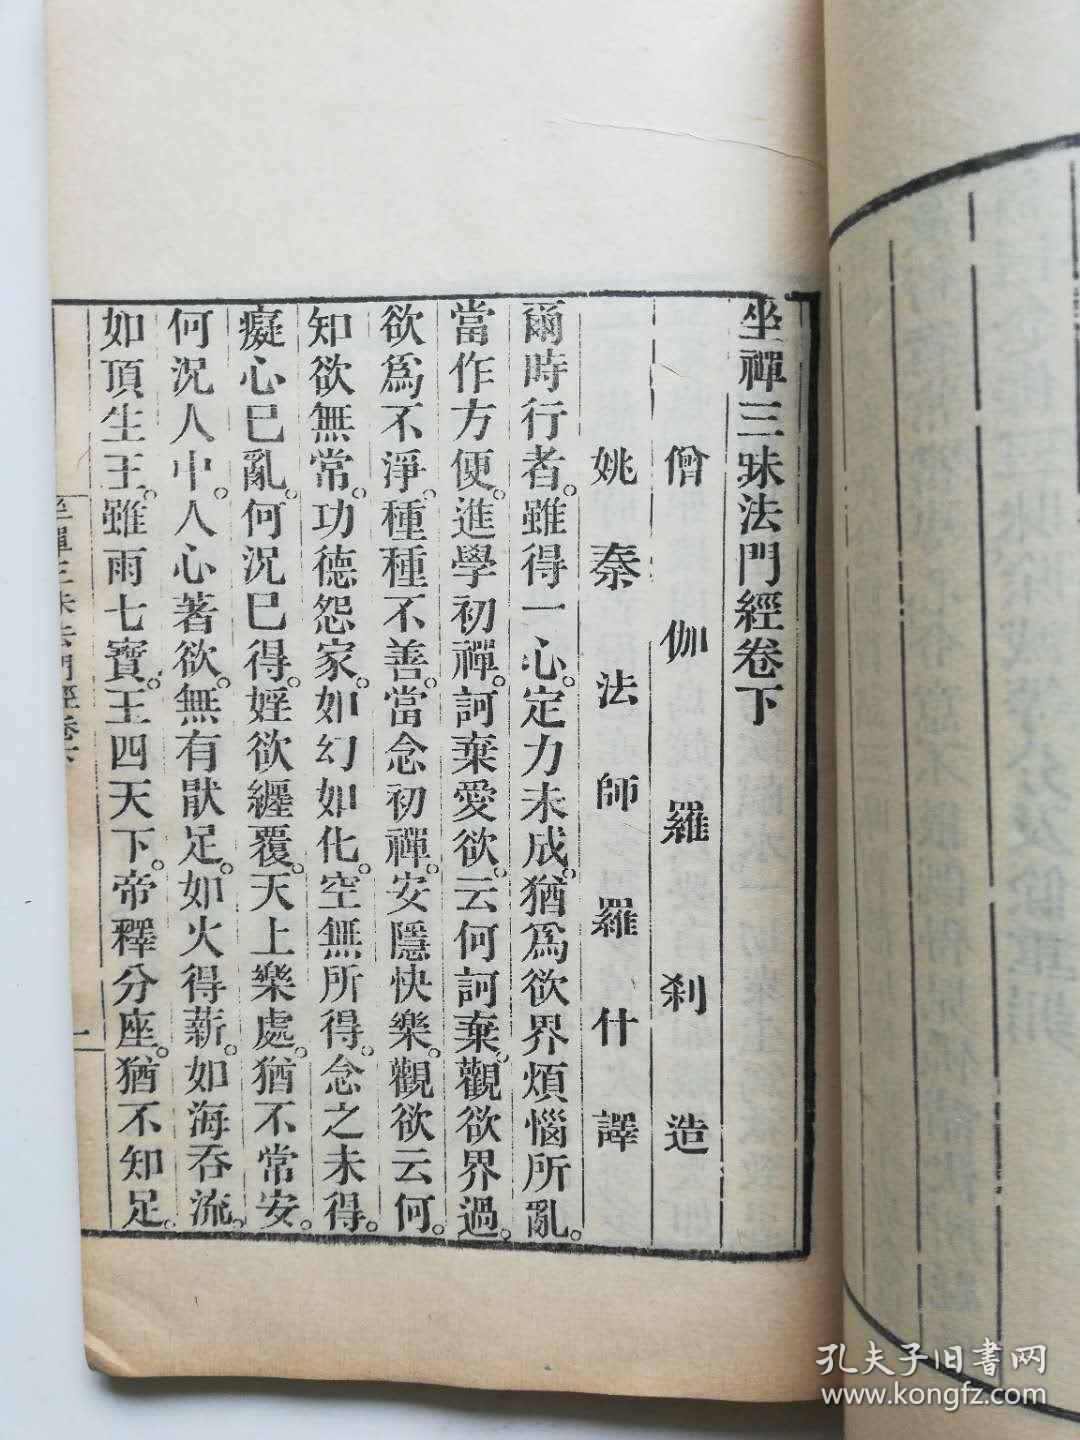 坐禪三昧法門經卷下
僧伽羅刹造
姚秦法師羅什譯
爾時行者。雖得一心。定力未成。猶爲欲界煩惱所亂。
當作方便。進學初禪。訶棄愛欲。云何訶棄。觀欲界過。
欲爲不淨。種種不善。當念初禪。安隱快樂。觀欲云何。
知欲無常。功德怨家。如幻如化。空無所得。念之未得。
癡心已亂。何況已得。婬欲纏覆。天上樂處。猶不常安。
何況人中。人心著欲。無有猒足。如火得薪。如海吞流。
如頂生王。雖雨七寶。王四天下。帝釋分座。猶不知足。
坐禪三昧法門經卷下
一
孔夫子旧书网
www.kongfz.com